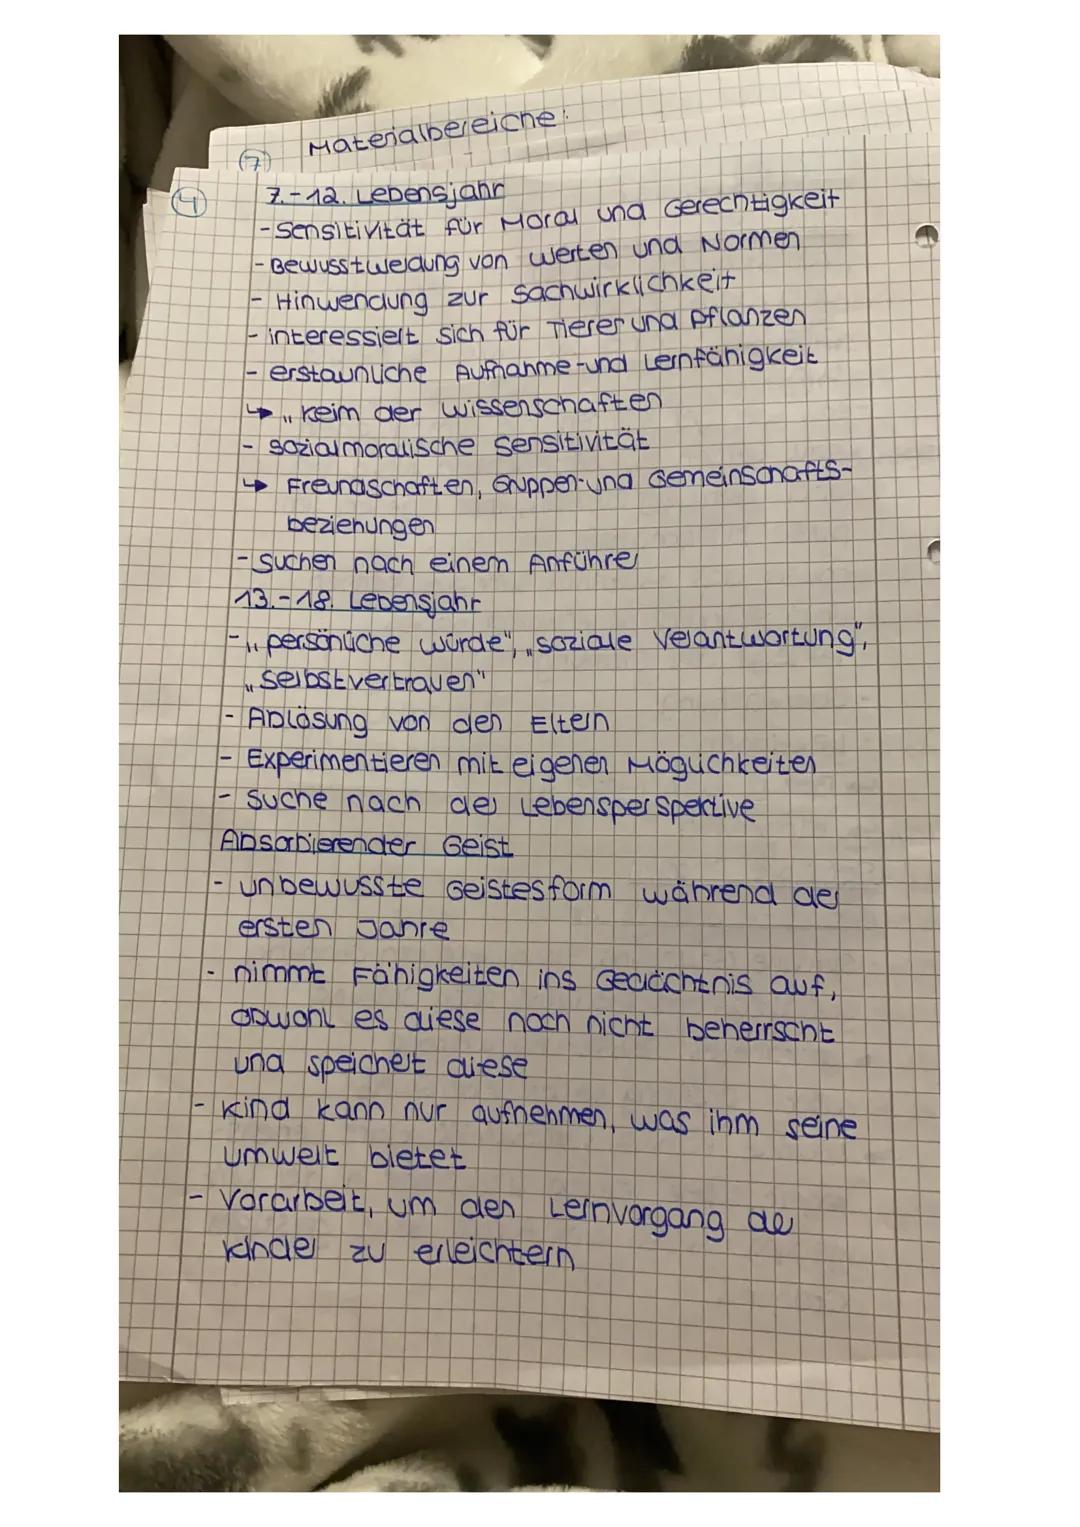 Materialbereiche:
7
4
7.-12. Lebensjahr
- Sensitivität für Moral und Gerechtigkeit
- Bewusstwerdung von Werten und Normen
- Hinwendung zur Sachwirklichkeit
- interessiert sich für Tierer und Pflanzen
- erstaunliche Aufnahme-und Lernfähigkeit
↳ „Keim der Wissenschaften
- sozialmoralische Sensitivität
↳ Freundschaften, Gruppen-und Gemeinschafts-
beziehungen
- suchen nach einem Anführer
13.-18. Lebensjahr
- „persönliche würde", „soziale Verantwortung",
„Selbstvertrauen"
- Ablösung von den Eltern
- Experimentieren mit eigenen Möglichkeiten
- Suche nach der Lebensperspektive
Absorbierender Geist
- unbewusste Geistesform während der
ersten Jahre
- nimmt Fähigkeiten ins Gedächtnis auf,
obwohl es diese noch nicht beherrscht
und speichert diese
- Kind kann nur aufnehmen, was ihm seine
Umwelt bietet
- Vorarbeit, um den Lernvorgang der
Kinder zu erleichtern